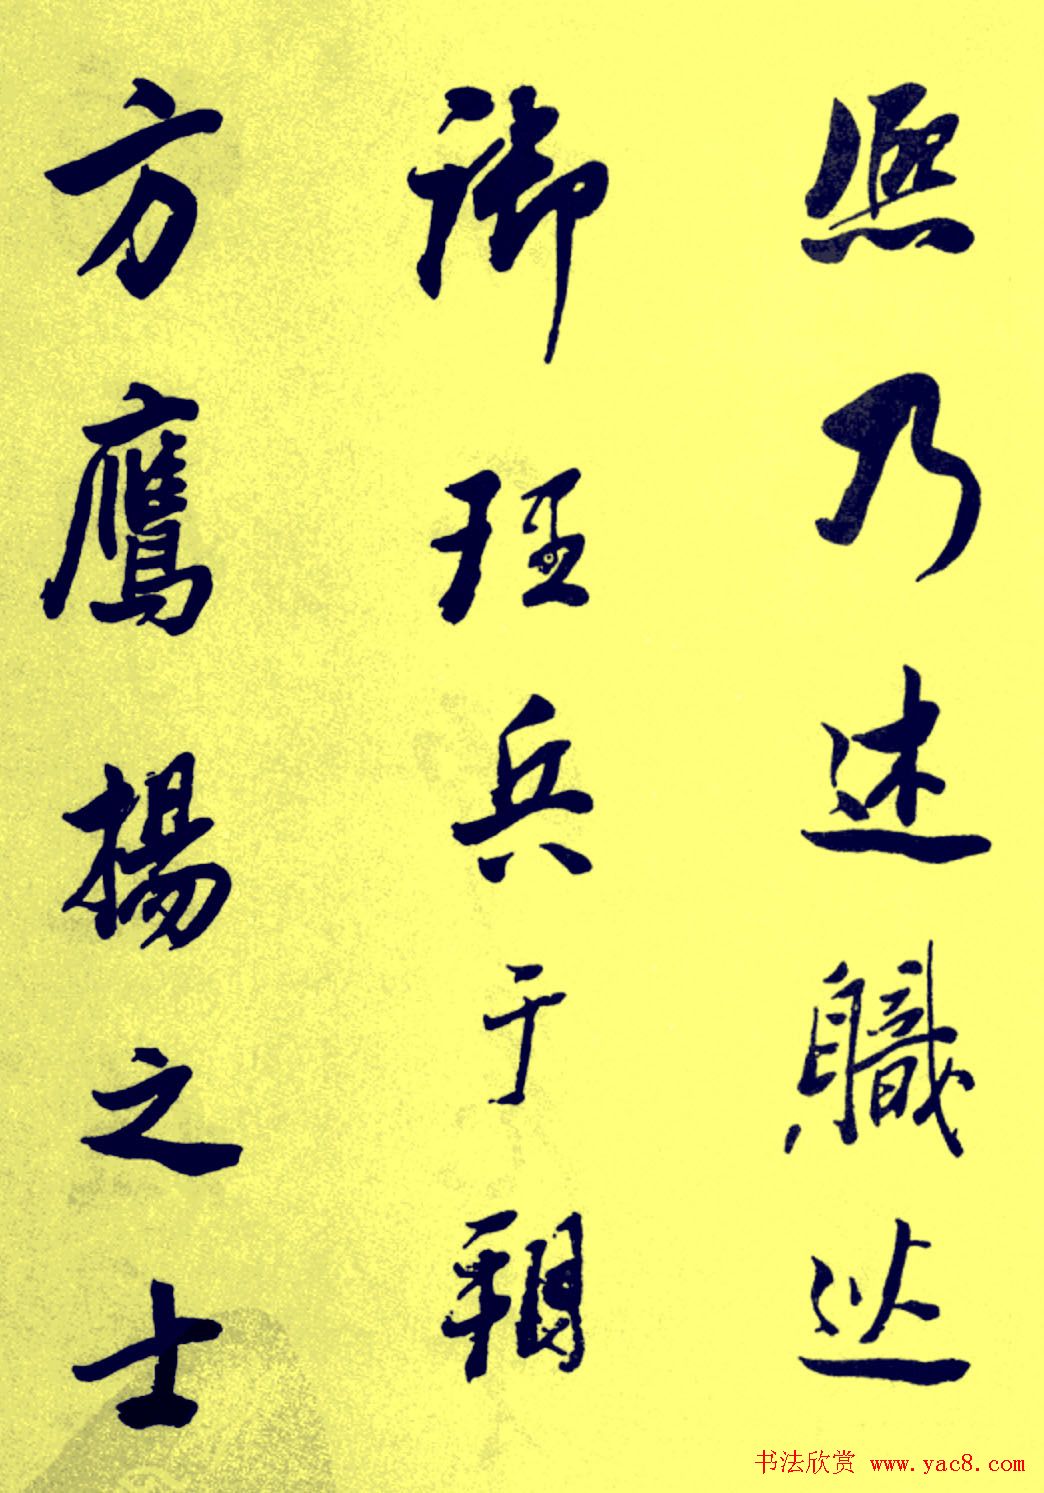 熙乃述職
御理兵于朔
方鷹揚之士
书法欣赏 www.yac8.com